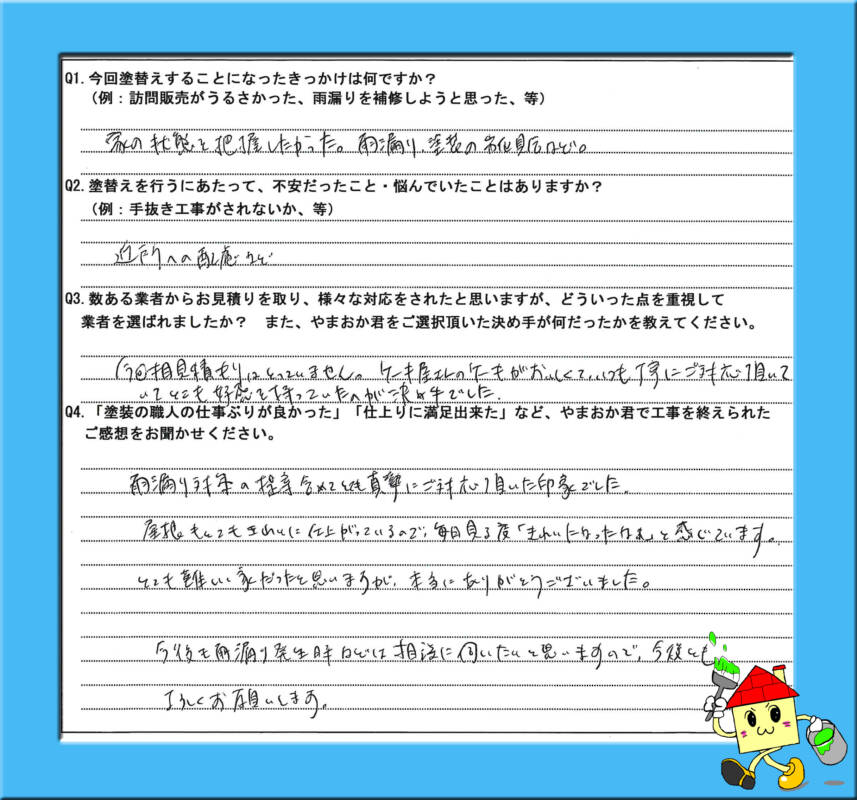 Q1. 今回塗替えすることになったきっかけは何ですか？
（例：訪問販売がうるさかった、雨漏りを補修しようと思った、等）
家の状態を把握したかった。雨漏り、塗装の劣化具合など。
Q2. 塗替えを行うにあたって、不安だったこと・悩んでいたことはありますか？
（例：手抜き工事がされないか、等）
近所への配慮など
Q3. 数ある業者からお見積りを取り、様々な対応をされたと思いますが、どういった点を重視して
業者を選ばれましたか？　また、やまおか君をご選択頂いた決め手が何だったかを教えてください。
今回相見積もりはとっていません。ケーキ屋さんのケーキがおいしくて、いつも丁寧にご対応頂いて
いてとても好感を持っていたのが決め手でした。
Q4. 「塗装の職人の仕事ぶりが良かった」「仕上りに満足出来た」など、やまおか君で工事を終えられた
ご感想をお聞かせください。
雨漏り対策の提案含めてとても真摯にご対応頂いた印象でした。
屋根もとてもきれいに仕上がっているので、毎日見る度「きれいになったなぁ」と感じています。
とても難しい家だったと思いますが、本当にありがとうございました。
今後も雨漏り発生時などは相談に伺いたいと思いますので、今後とも
よろしくお願いします。